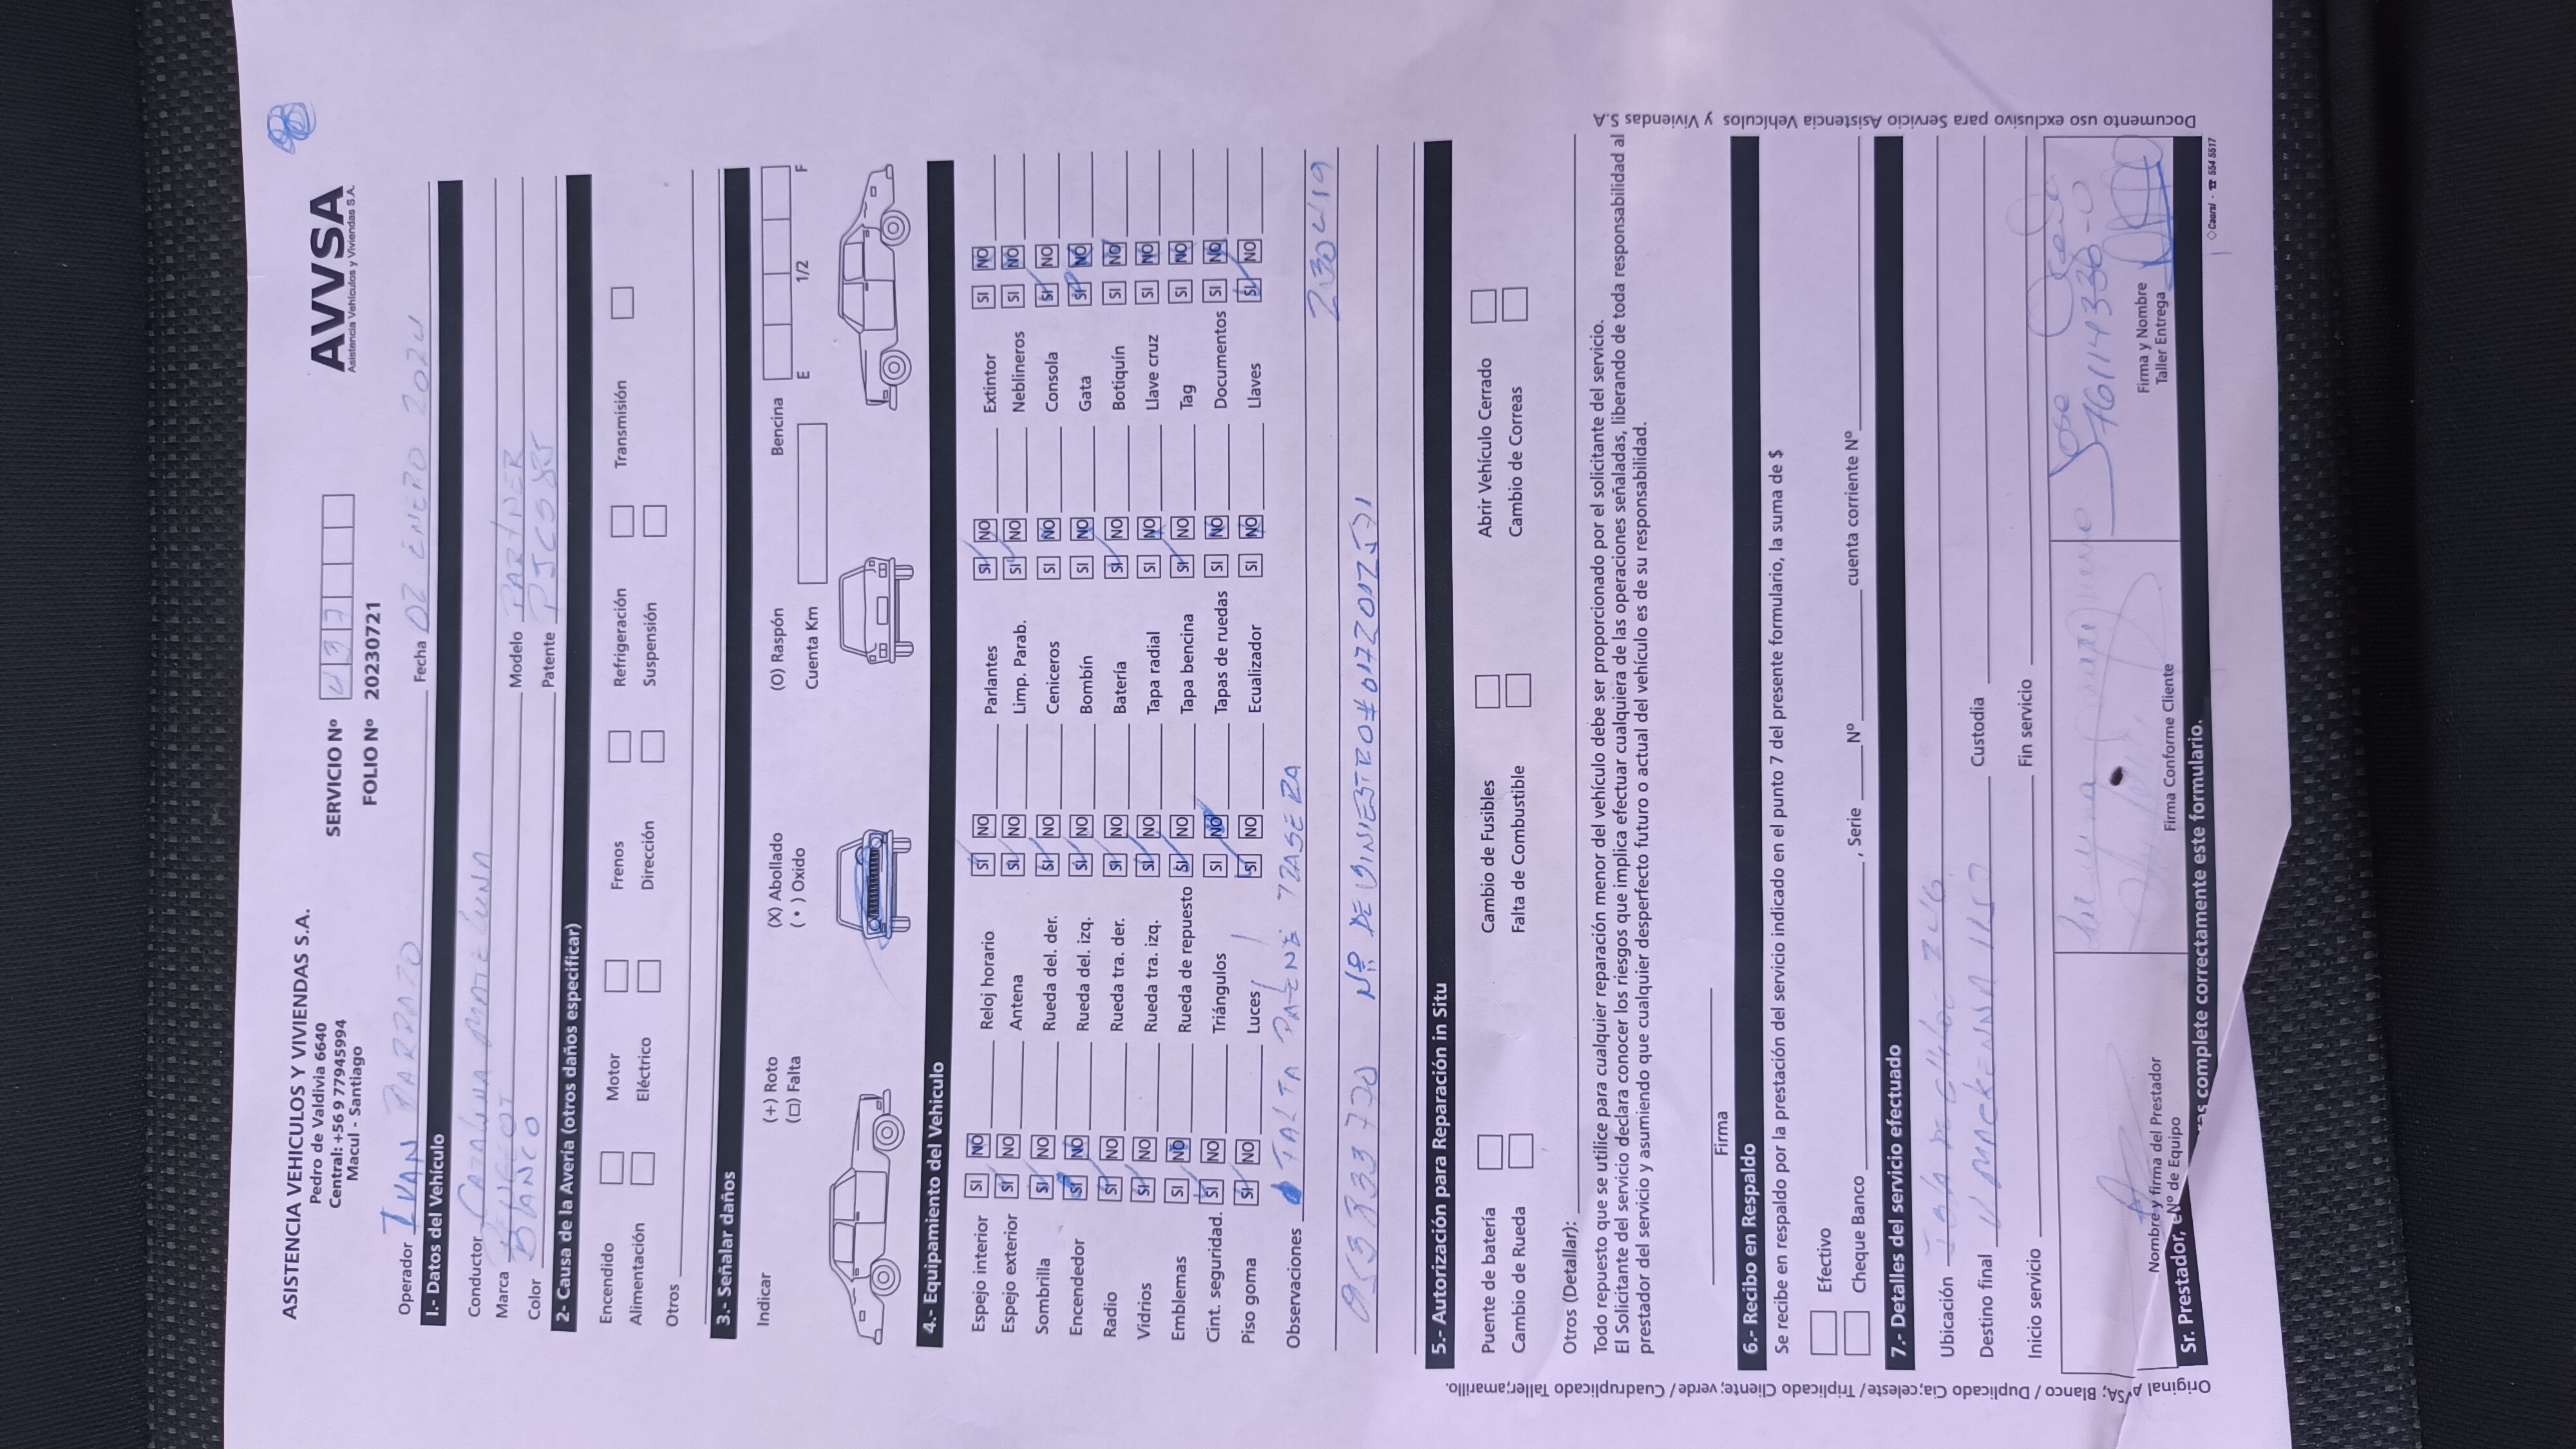 ASISTENCIA VEHICULOS Y VIVIENDAS S.A.
Pedro de Valdivia 6640
Central: +56 9 77945994
Macul - Santiago
SERVICIO Nº
FOLIO Nº 20230721
AVVSA
Asistencia Vehículos y Viviendas S.A.
Operador IVAN PARRAZO Fecha 02 ENERO 2024
1.- Datos del Vehículo
Conductor
Marca Modelo PARTNER
Color BLANCO Patente
2- Causa de la Avería (otros daños especificar)
Encendido Motor Frenos Refrigeración Transmisión
Alimentación Eléctrico Dirección Suspensión
Otros
3.- Señalar daños
Indicar (+) Roto (X) Abollado (O) Raspón Bencina
(□) Falta (•) Oxido Cuenta Km E 1/2 F
4.- Equipamiento del Vehículo
Espejo interior SI NO Reloj horario SI NO Parlantes SI NO Extintor SI NO
Espejo exterior SI NO Antena SI NO Limp. Parab. SI NO Neblineros SI NO
Sombrilla SI NO Rueda del. der. SI NO Ceniceros SI NO Consola SI NO
Encendedor SI NO Rueda del. izq. SI NO Bombín SI NO Gata SI NO
Radio SI NO Rueda tra. der. SI NO Batería SI NO Botiquín SI NO
Vidrios SI NO Rueda tra. izq. SI NO Tapa radial SI NO Llave cruz SI NO
Emblemas SI NO Rueda de repuesto SI NO Tapa bencina SI NO Tag SI NO
Cint. seguridad. SI NO Triángulos SI NO Tapas de ruedas SI NO Documentos SI NO
Piso goma SI NO Luces SI NO Ecualizador SI NO Llaves SI NO
Observaciones FALTA PATENTE TRASERA
Nº DE SINIESTRO#
5.- Autorización para Reparación in Situ
Puente de batería Cambio de Fusibles Abrir Vehículo Cerrado
Cambio de Rueda Falta de Combustible Cambio de Correas
Otros (Detallar):
Todo repuesto que se utilize para cualquier reparación menor del vehículo debe ser proporcionado por el solicitante del servicio.
El Solicitante del servicio declara conocer los riesgos que implica efectuar cualquiera de las operaciones señaladas, liberando de toda responsabilidad al
prestador del servicio y asumiendo que cualquier desperfecto futuro o actual del vehículo es de su responsabilidad.
Firma
6.- Recibo en Respaldo
Se recibe en respaldo por la prestación del servicio indicado en el punto 7 del presente formulario, la suma de $
Efectivo
Cheque Banco , Serie Nº cuenta corriente Nº
7.- Detalles del servicio efectuado
Ubicación
Destino final V MACKENNA Custodia
Inicio servicio Fin servicio
Jose
Nombre y firma del Prestador
Nº de Equipo
Firma Conforme Cliente
Firma y Nombre
Taller Entrega
Sr. Prestador, complete correctamente este formulario.
Caorsi - ☎ 554 5517
Original AVSA; Blanco / Duplicado Cia;celeste / Triplicado Cliente; verde / Cuadruplicado Taller;amarillo.
Documento uso exclusivo para Servicio Asistencia Vehículos y Viviendas S.A